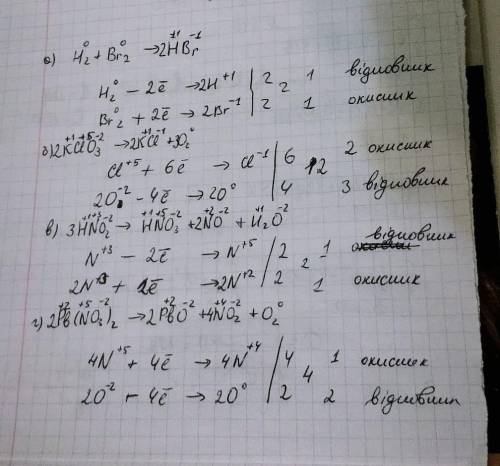 а) H₂⁰ + Br₂⁰ → 2H⁺¹Br⁻¹
H₂⁰ − 2ē → 2H⁺¹ | 2 2 1 відновник
Br₂⁰ + 2ē → 2Br⁻¹ | 2 1 окисник
б) 2K⁺¹Cl⁺⁵O₃⁻² → 2K⁺¹Cl⁻¹ + 3O₂⁰
Cl⁺⁵ + 6ē → Cl⁻¹ | 6 12 2 окисник
2O⁻² − 4ē → 2O⁰ | 4 3 відновник
в) 3H⁺¹N⁺³O₂⁻² → H⁺¹N⁺⁵O₃⁻² + 2N⁺²O⁻² + H₂⁺¹O⁻²
N⁺³ − 2ē → N⁺⁵ | 2 2 1 відновник
2N⁺³ + 2ē → 2N⁺² | 2 1 окисник
г) 2Pb⁺²(N⁺⁵O₃⁻²)₂ → 2Pb⁺²O⁻² + 4N⁺⁴O₂⁻² + O₂⁰
4N⁺⁵ + 4ē → 4N⁺⁴ | 4 4 1 окисник
2O⁻² − 4ē → 2O⁰ | 2 2 відновник